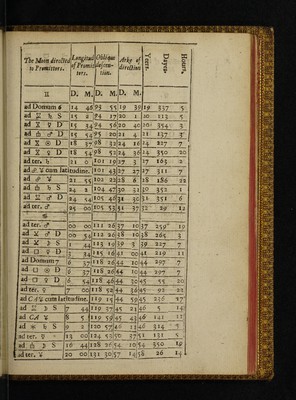 The Moon directed to Promittors.
Longitud of Promittors.
Oblique Ascention.
Arks of direction
Years.
Days.
Hours.
♊ D. M. D. M. D. M.
ad Domum 6 14 46 93 55 19 39 19 357 5
ad ♊ ♄ S 15 2 94 17 20 1 20 113 5
ad ♓ ♀ D 15 34 94 56 20 40 20 354 3
ad ♎ ♂ D 15 54 95 20 21 4 21 137 3
ad ♓ ☉ D 18 37 98 32 24 16 24 227 7
ad ♓ ♀ D 18 54 98 52 24 36 24 350 20
ad ter. ♄ 21 0 101 19 27 3 27 163 2
ad ☍ ♉ cum latitudine. 101 43 27 27 27 311 7
ad ☍ ♉ 21 55 102 22 28 6 28 186 22
ad ♎ ♄ S 24 8 104 47 30 31 30 352 1
ad ♊ ♂ D 24 54 105 46 31 30 31 351 6
ad ter. ♂ 25 00 105 53 31 37 32 29 12
♋
ad ter. ♂ 00 00 111 26 37 10 37 259 19
ad ♓ ♂ D 00 54 112 26 38 10 38 265 3
ad ♓ ☽ S 1 44 113 19 39 3 39 227 7
3 34 115 16 41 00 41 219 11
ad Domum 7 6 37 118 26 44 10 44 297 7
ad □ ☉ D 6 37 118 26 44 10 44 297 7
ad □ ♀ D 6 54 118 46 44 30 45 55 20
ad ter. ♀ 7 00 118 52 44 36 45 92 22
cum latitudine. 119 15 44 59 45 236 17
ad ♊ ☽ S 7 44 119 37 45 21 46 5 14
8 5 119 59 45 43 46 141 12
ad ☉ ♄ S 9 2 120 57 46 13 46 314 5
ad ter. ♀ 13 00 124 52 50 37 51 131 5
ad ♎ ☽ S 16 44 128 26 54 10 54 350 19
ad ter. 20 00 131 30 57 14 58 26 14